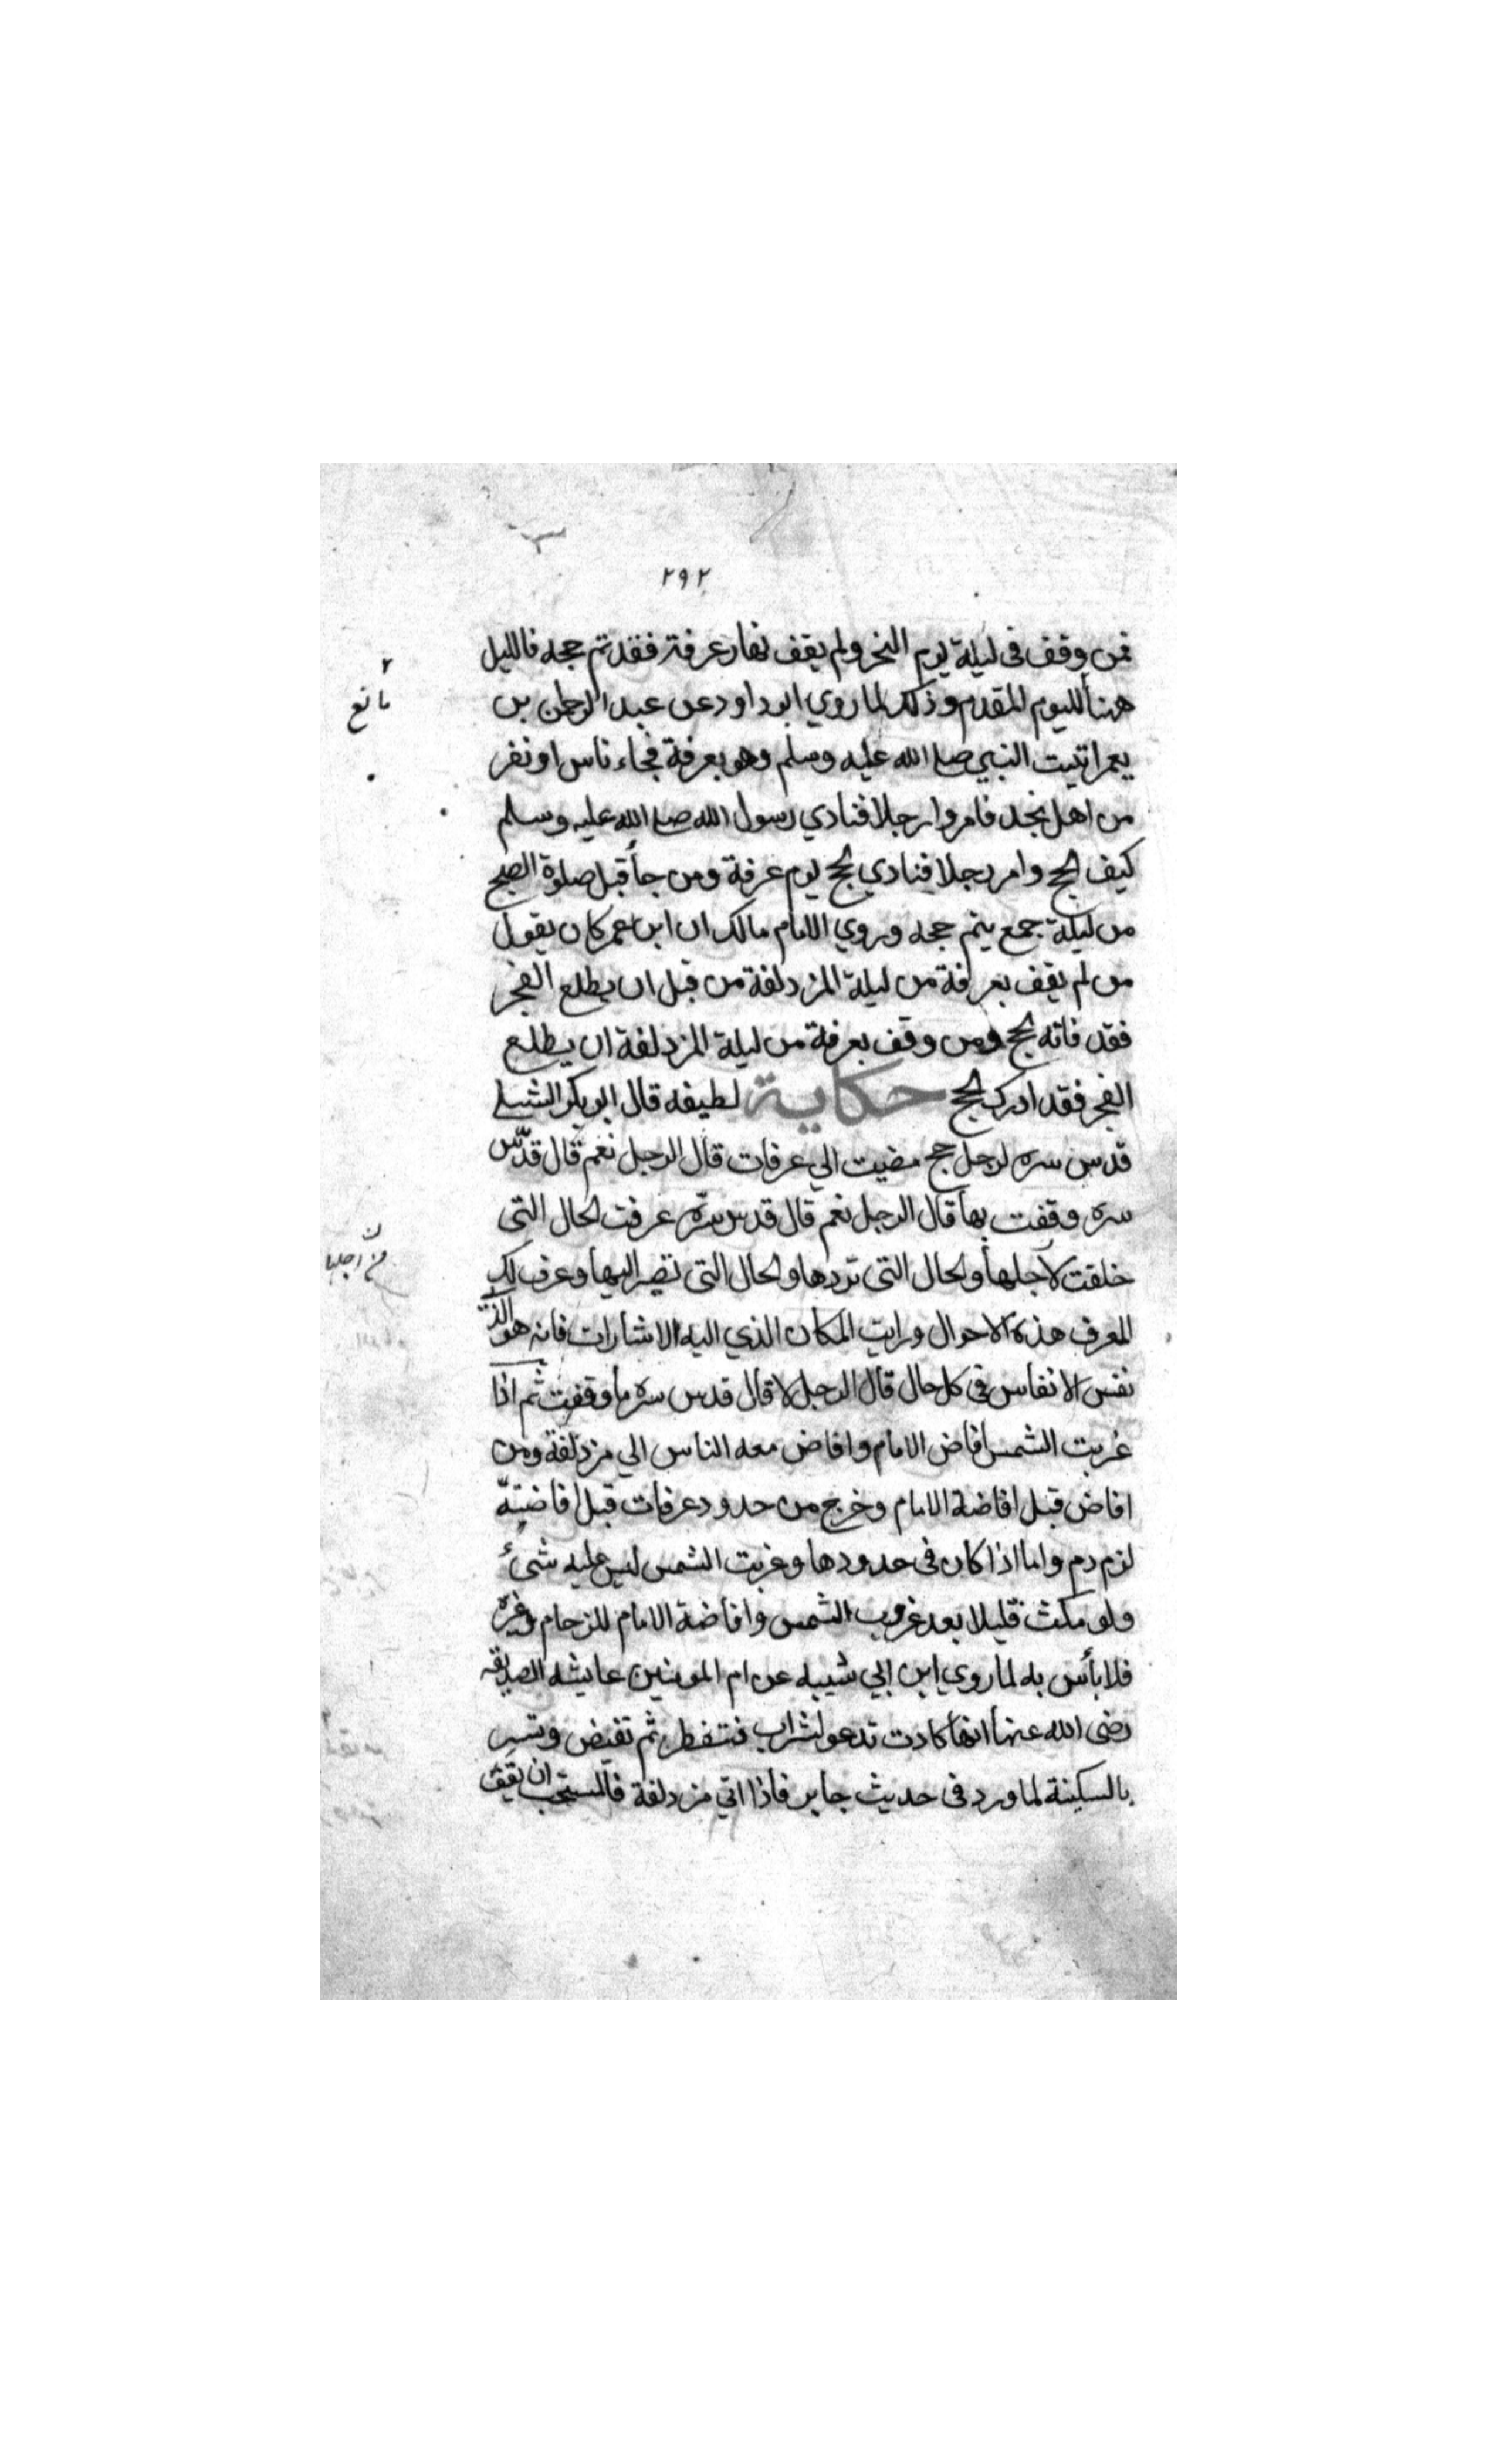 ٢٩٢
فمن وقف فى ليلة يوم النحر ولم يقف نهار عرفة فقد تم حجه فالليل
ههنا لليوم المقدم وذلك لما روي ابو داود عن عبد الرحمن بن
يعمر اتيت النبي صلى الله عليه وسلم وهو بعرفة فجاء ناس او نفر
من اهل نجد فامروا رجلا فنادي رسول الله صلى الله عليه وسلم
كيف الحج وامر رجلا فنادي الحج يوم عرفة ومن جأ قبل صلوة الصبح
من ليلة جمع يتم حجه وروي الامام مالك ان ابن عمر كان يقول
من لم يقف بعرفة من ليلة المزدلفة من قبل ان يطلع الفجر
فقد فاته الحج ومن وقف بعرفة من ليلة المزدلفة ان يطلع
الفجر فقد ادرك الحج حكاية لطيفه قال ابو بكر الشبلي
قدس سره لرجل حج مضيت الي عرفات قال الرجل نعم قال قدّس
سره وقفت بها قال الرجل نعم قال قدس سرّه عرفت الحال التى
خلقت لاجلها والحال التى تردها والحال التى تصير اليها وعرف لك
المعرف هذه الاحوال ورايت المكان الذي اليه الاشارات فانه هو الذى
نفس الانفاس فى كل حال قال الرجل لا قال قدس سره ما وقفت ثم اذا
غربت الشمس افاض الامام وافاض معه الناس الي مزدلفة ومن
افاض قبل افاضة الامام وخرج من حدود عرفات قبل افاضته
لزم دم واما اذا كان فى حدودها وغربت الشمس ليس عليه شئ
ولو مكث قليلا بعد غروب الشمس وافاضة الامام للزحام وغيره
فلا بأس به لما روي ابن ابي شيبه عن ام المومنين عايشه الصديقه
رضى الله عنها انها كادت تدعو لشراب فتفطر ثم تفيض وتسير
بالسكينة لما ورد فى حديث جابر فاذا اتي مزدلفة فالمستحب ان يقف